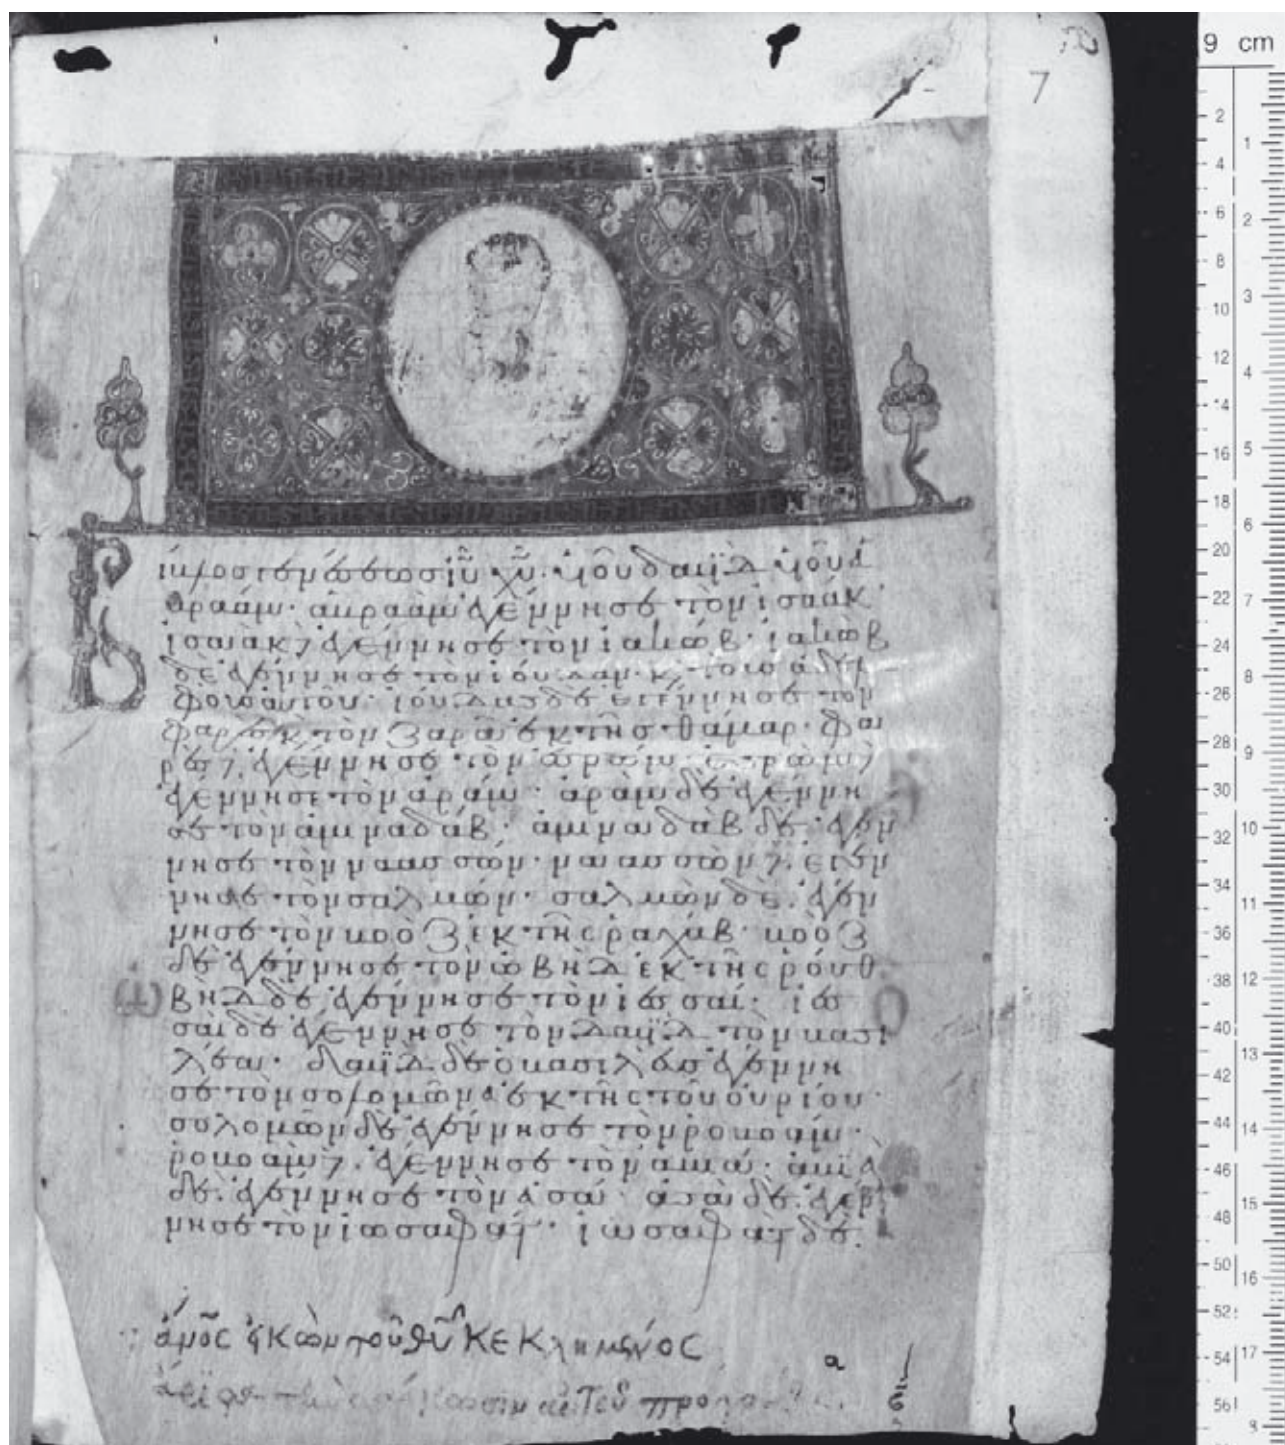 7
Βίβλος γενέσεως ἰῦ χῦ· υἱοῦ δαυῒδ υἱοῦ ἀ
βραάμ· ἀβραὰμ ἐγέννησε τὸν ἰσαάκ·
ἰσαὰκ δὲ ἐγέννησε τὸν ἰακώβ· ἰακὼβ
δὲ ἐγέννησε τὸν ἰούδαν· κ τοὺς ἀδελ
φοὺς αὐτοῦ· ἰούδας δὲ ἐγέννησε τὸν
φαρὲς κ τὸν ζαρὰ ἐκ τῆς θάμαρ· φα
ρὲς δὲ ἐγέννησε τὸν ἐσρώμ· ἐσρὼμ δὲ
ἐγέννησε τὸν ἀράμ· ἀρὰμ δὲ ἐγέννη
σε τὸν ἀμιναδάβ· ἀμιναδὰβ δὲ ἐγέν
νησε τὸν ναασσών· ναασσὼν δὲ ἐγέν
νησε τὸν σαλμών· σαλμὼν δὲ ἐγέν
νησε τὸν βοὸζ ἐκ τῆς ῥαχάβ· βοὸζ
δὲ ἐγέννησε τὸν ὠβὴδ ἐκ τῆς ῥούθ·
ὠβὴδ δὲ ἐγέννησε τὸν ἰεσσαί· ἰεσ
σαὶ δὲ ἐγέννησε τὸν δαυῒδ τὸν βασι
λέα· δαυῒδ δὲ ὁ βασιλεὺς ἐγέννη
σε τὸν σολομῶνα ἐκ τῆς τοῦ οὐρίου·
σολομὼν δὲ ἐγέννησε τὸν ῥοβοάμ·
ῥοβοὰμ δὲ ἐγέννησε τὸν ἀβιά· ἀβιὰ
δὲ ἐγέννησε τὸν ἀσά· ἀσὰ δὲ ἐγέν
νησε τὸν ἰωσαφάτ· ἰωσαφὰτ δὲ
τοῦ θῦ κεκλημένος
α